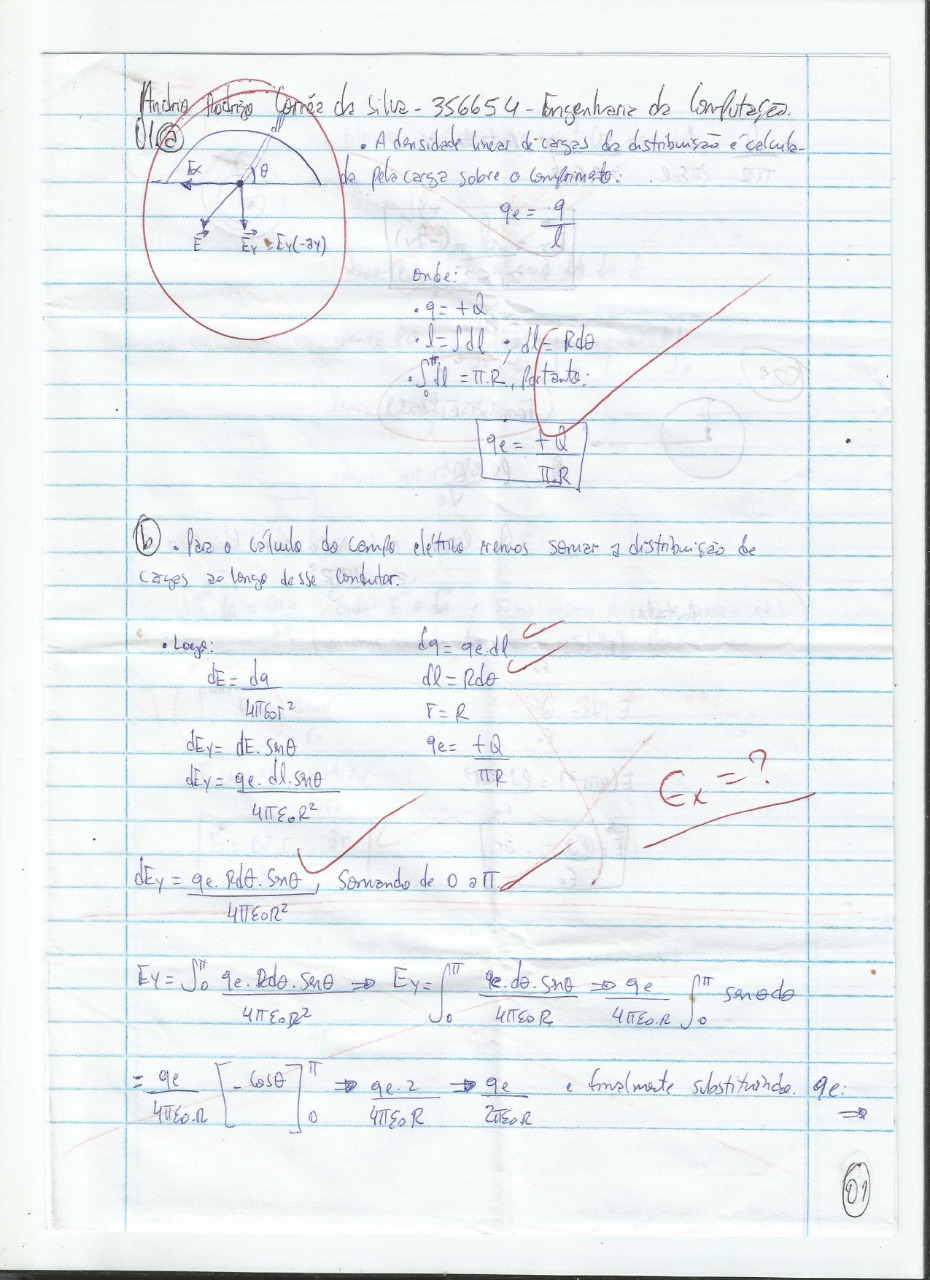 Correa da Silva - 356654 - Engenharia da Computação.
01 a
dl
Ex
θ
E
Ey = Ey(-ay)
• A densidade linear de cargas da distribuição é calcula-
da pela carga sobre o comprimento:
qe = q/l
onde:
• q = +Q
• l = ∫dl ; dl = Rdθ
• ∫₀^π dl = π.R, portanto:
qe = +Q/π.R
b • Para o cálculo do campo elétrico iremos somar a distribuição de
cargas ao longo desse condutor.
• Logo:
dq = qe.dl
dE = dq/4πε₀r²
dl = Rdθ
r = R
dEy = dE.senθ
qe = +Q/πR
dEy = qe.dl.senθ/4πε₀R²
Ex = ?
dEy = qe.Rdθ.senθ/4πε₀R², somando de 0 a π.
Ey = ∫₀^π qe.Rdθ.senθ/4πε₀R² ⇒ Ey = ∫₀^π qe.dθ.senθ/4πε₀R ⇒ qe/4πε₀.R ∫₀^π senθdθ
= qe/4πε₀.R [-cosθ]₀^π ⇒ qe.2/4πε₀R ⇒ qe/2πε₀R e finalmente substituindo qe:
⇒
01